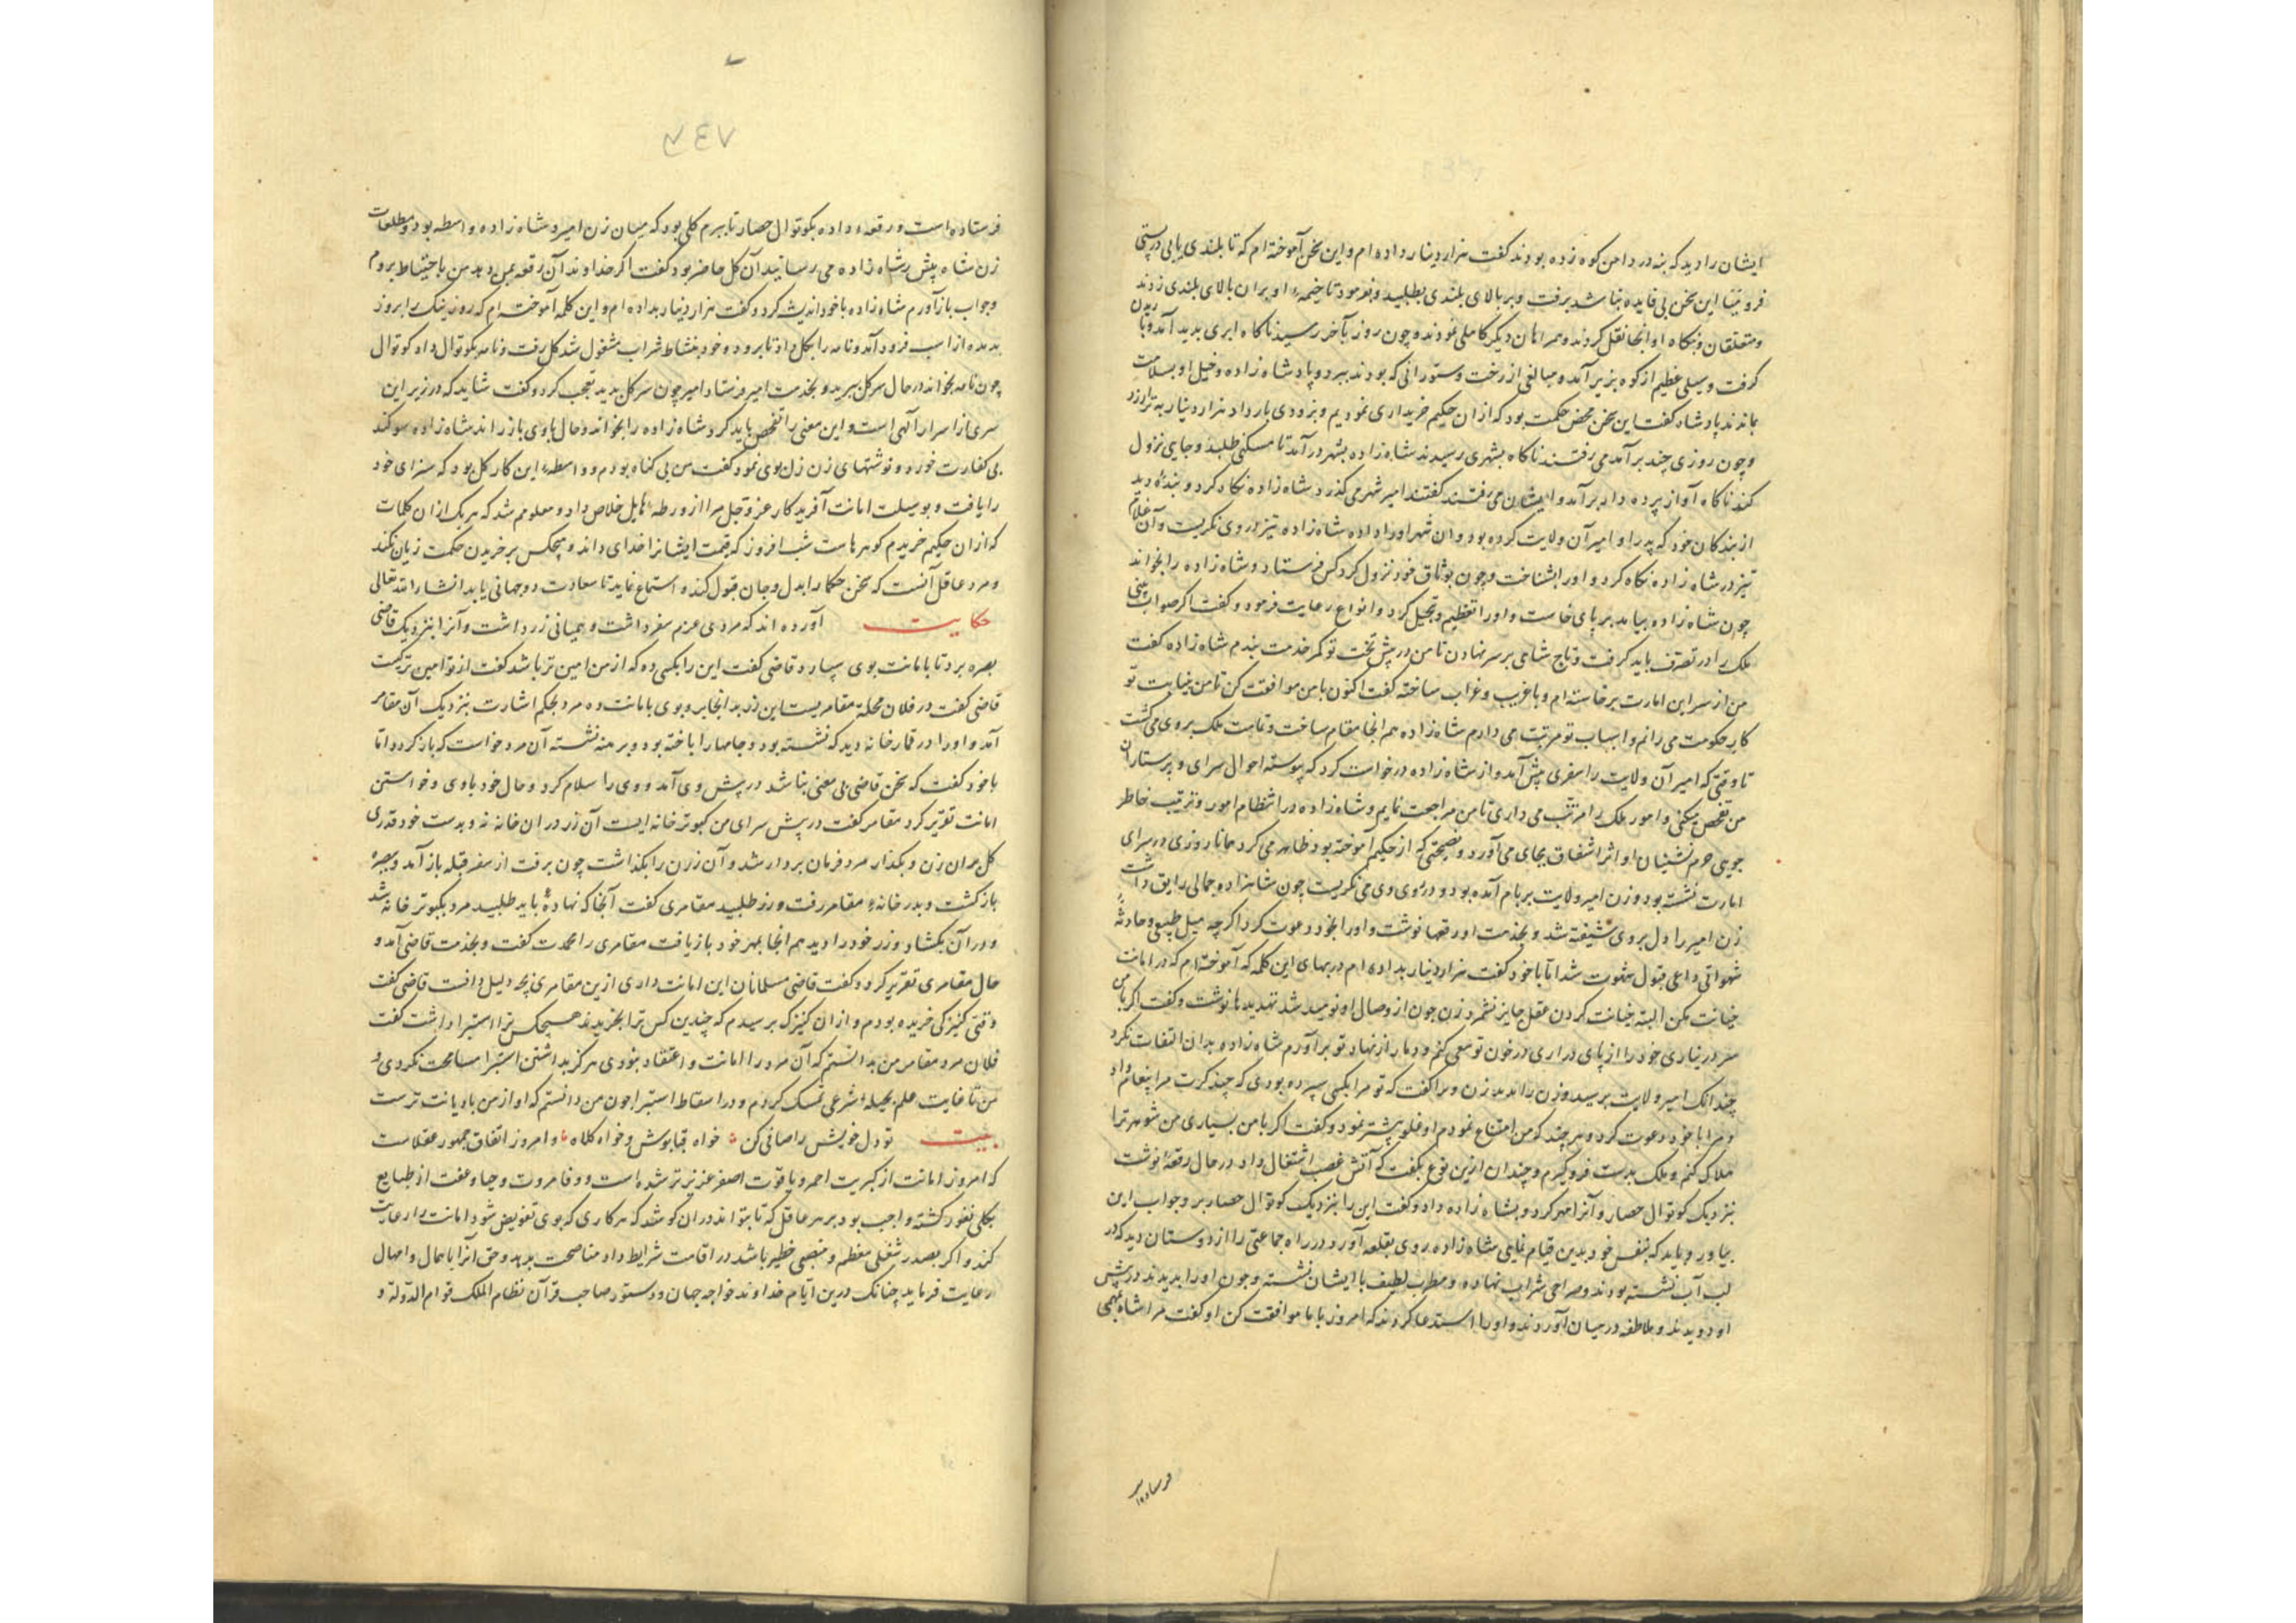 ایشان را دید که بنه در دامن کوه زده بودند گفت هزار دینار داده ام و این سخن آموخته ام که تا بلندی یابی در پستی
فرو میا این سخن بی فایده نباشد برفت و بر بالای بلندی بطلبید و بفرمود تا خیمهٔ او بران بالای بلندی زدند
و متعلقان و بنکاه او آنجا نقل کردند و همراهان دیگر کاهلی نمودند و چون روز بآخر رسید ناکاه ابری بدید آمد و باریدن
گرفت و سیلی عظیم از کوه بزیر آمد و مبالغی از رخت و ستورانی که بودند ببرد و پادشاه زاده و خیل او بسلامت
بماندند پادشاه گفت این سخن محض حکمت بود که ازان حکیم خریداری نمودیم و بزودی بار داد هزار دینار به ترا ارزد
و چون روزی چند برآمد می رفتند ناکاه بشهری رسیدند شاه زاده بشهر درآمد تا مسکنی طلبد و جایی نزول
کند ناکاه آواز پرده دار برآمد و ایشان می رفتند گفتند امیر شهر می گذرد شاه زاده نگاه کرد و بندهٔ دید
از بندگان خود که پدر او امیر آن ولایت کرده بود و ان شهر او را داده شاه زاده تیز در وی نگریست و آن غلام
تیز در شاه زاده نگاه کرد و او را بشناخت و چون بوثاق خود نزول کرد کس فرستاد و شاه زاده را بخواند
چون شاه زاده بیامد بر پای خاست و او را تعظیم و تبجیل کرد و انواع رعایت فرمود و گفت اگر صواب بینی
ملک را در تصرف باید گرفت و تاج شاهی بر سر نهادن تا من در پیش تخت تو کمر خدمت بندم شاه زاده گفت
من از سر این امارت برخاسته ام و با غریب و غراب ساخته گفت اکنون با من موافقت کن تا من بنیابت تو
کار حکومت می رانم و اسباب تو مرتب می دارم شاه زاده هم انجا مقام ساخت و تمامت ملک بر وی می گشت
تا وقتی که امیر آن ولایت را سفری پیش آمد و از شاه زاده درخواست کرد که پیوسته احوال سرای و پرستاران
من تفحص میکنی و امور ملک را مرتب می داری تا من مراجعت نمایم و شاه زاده در انتظام امور و ترتیب خاطر
جویی حرم نشینان او اثر اشفاق بجای می آورد و نصیحتی که از حکیم آموخته بود ظاهر می کرد همانا روزی در سرای
امارت نشسته بود و زن امیر ولایت بر بام آمده بود و در روی وی می نگریست چون شاهزاده جمالی رایق داشت
زن امیر را دل بر وی شیفته شد و بخدمت او رقعها نوشت و او را بخود دعوت کرد اگرچه میل طبیعی و حادثهٔ
شهوانی داعی قبول شهوت شد اما با خود گفت هزار دینار بداده ام در بهای این کلمه که آموخته ام که در امانت
خیانت مکن البته خیانت کردن عقل جایز نشمرد زن چون از وصال او نومید شد تهدیدها نوشت و گفت اگر با من
سر در نیاری خود را از پای دراری در خون تو سعی کنم و دمار از نهاد تو برآورم شاه زاده بدان التفات نکرد
چندانک امیر ولایت برسید و زن را بدید زن ویرا گفت که تو مرا بکسی سپرده بودی که چند کرت مرا پیغام داد
و مرا با خود دعوت کرد و هر چند که من امتناع نمودم او غلو بیشتر نمود و گفت اگر با من بسیاری من شوهر ترا
هلاک کنم و ملک بدست فروگیرم و چندان ازین نوع بگفت که آتش غضب اشتعال داد در حال رقعهٔ نوشت
نزدیک کوتوال حصار و آنرا مهر کرد و بشاه زاده داد و گفت این را بنزدیک کوتوال حصار بر و جواب این
بیاور و باید که بنفس خود بدین قیام نمایی شاه زاده روی بقلعه آورد در راه جماعتی را از دوستان دید که در
لب آب نشسته بودند و صراحی شراب نهاده و مطرب لطیف با ایشان نشسته و چون او را بدیدند در پیش
او دویدند و ملاطفه در میان آوردند و او را استدعا کردند که امروز با ما موافقت کن او گفت مرا شاه بمهمی
فرستاده است
۷۴۷
فرستاده است و رقعه داده بکوتوال حصار تا ببرم کلی بود که میان زن امیر و شاه زاده واسطه بود و مطلعات
زن شاه پیش شاه زاده می رسانید آن کل حاضر بود گفت اگر خداوند آن رقعه بمن دهد من باحتیاط بروم
و جواب بازآورم شاه زاده با خود اندیشه کرد و گفت هزار دینار بداده ام و این کلمه آموخته ام که روز نیک را بروز
بد مده از اسب فرود آمد و نامه را بکل داد تا برود و خود بنشاط شراب مشغول شد کل رفت و نامه بکوتوال داد کوتوال
چون نامه بخواند در حال سر کل ببرید و بخدمت امیر فرستاد امیر چون سر کل بدید تعجب کرد و گفت شاید که در زیر این
سری از اسرار آلهی است و این معنی را تفحص باید کرد شاه زاده را بخواند و حال با وی باز راند شاه زاده سوگند
بی کفارت خورد و نوشتهای زن بوی نمود گفت من بی گناه بودم و واسطهٔ این کار کل بود که سزای خود
را یافت و بوسیلت امانت آفریدگار عز و جل مرا از ورطهٔ هایل خلاص داد و معلومم شد که هر یک ازان کلمات
که ازان حکیم خریدم گوهرهاست شب افروز که قیمت ایشانرا خدای داند و هیچکس بر خریدن حکمت زیان نکند
و مرد عاقل آنست که سخن حکما را بدل و جان قبول کند و استماع نماید تا سعادت دوجهانی یابد انشاءالله تعالی
حکایت آورده اند که مردی عزم سفر داشت و همیانی زر داشت و آنرا بنزدیک قاضی
بصره برد تا بامانت بوی سپارد قاضی گفت این را بکسی ده که از من امین تر باشد گفت از تو امین تر کیست
قاضی گفت در فلان محلة مقامریست این زر بدانجا بر و بوی بامانت ده مرد بحکم اشارت بنزدیک آن مقامر
آمد و او را در قمارخانه دید که نشسته بود و جامها را باخته بود و برهنه نشسته آن مرد خواست که باز گردد اما
با خود گفت که سخن قاضی بی معنی نباشد در پیش وی آمد و وی را سلام کرد و حال خود با وی و خواستن
امانت تقریر کرد مقامر گفت در پیش سرای من کبوترخانه ایست آن زر در ان خانه نه و بدست خود قدری
کل بران زن و بگذار مرد فرمان بردار شد و آن زر را بگذاشت چون برفت از سفر قبله باز آمد و ببصرهٔ
بازگشت و بدر خانهٔ مقامر رفت و زر طلبید مقامری گفت آنجا که نهادهٔ باید طلبید مرد بکبوترخانه شد
و در آن بگشاد و زر خود را دید هم انجا بمهر خود باز یافت مقامری را محمدت گفت و بخدمت قاضی آمد و
حال مقامری تقریر کرد و گفت قاضی مسلمانان این امانت داری ازین مقامری بچه دلیل دانست قاضی گفت
وقتی کنیزکی خریده بودم و ازان کنیزک برسیدم که چندین کس ترا بخریدند هیچکس ترا استبرا داشت گفت
فلان مرد مقامر من بدانستم که آن مرد را امانت و اعتقاد بنودی هرگز بداشتن استبرا مسامحت نکردی و
من تا غایت علم بحیلهٔ شرعی تمسک کردم و در اسقاط استبرا چون من دانستم که او از من با دیانت ترست
بیت تو دل خویش را صافی کن خواه قبا پوش و خواه کلاه و امروز اتفاق جمهور عقلاست
که امروز امانت از کبریت احمر و یاقوت اصفر عزیزتر شده است و وفا مروت و حیا و عفت از طبایع
بکلی نفور گشته واجب بود بر هر عاقل که تا بتواند دران کوشد که هر کاری که بوی تفویض شود امانت را رعایت
کند و اگر بصدر شغلی معظم و منصبی خطیر باشد در اقامت شرایط داد مناصحت بدهد و حق آنرا باهمال و امهال
رعایت فرماید چنانک درین ایام خداوند خواجه جهان و دستور صاحب قرآن نظام الملک قوام الدوله و